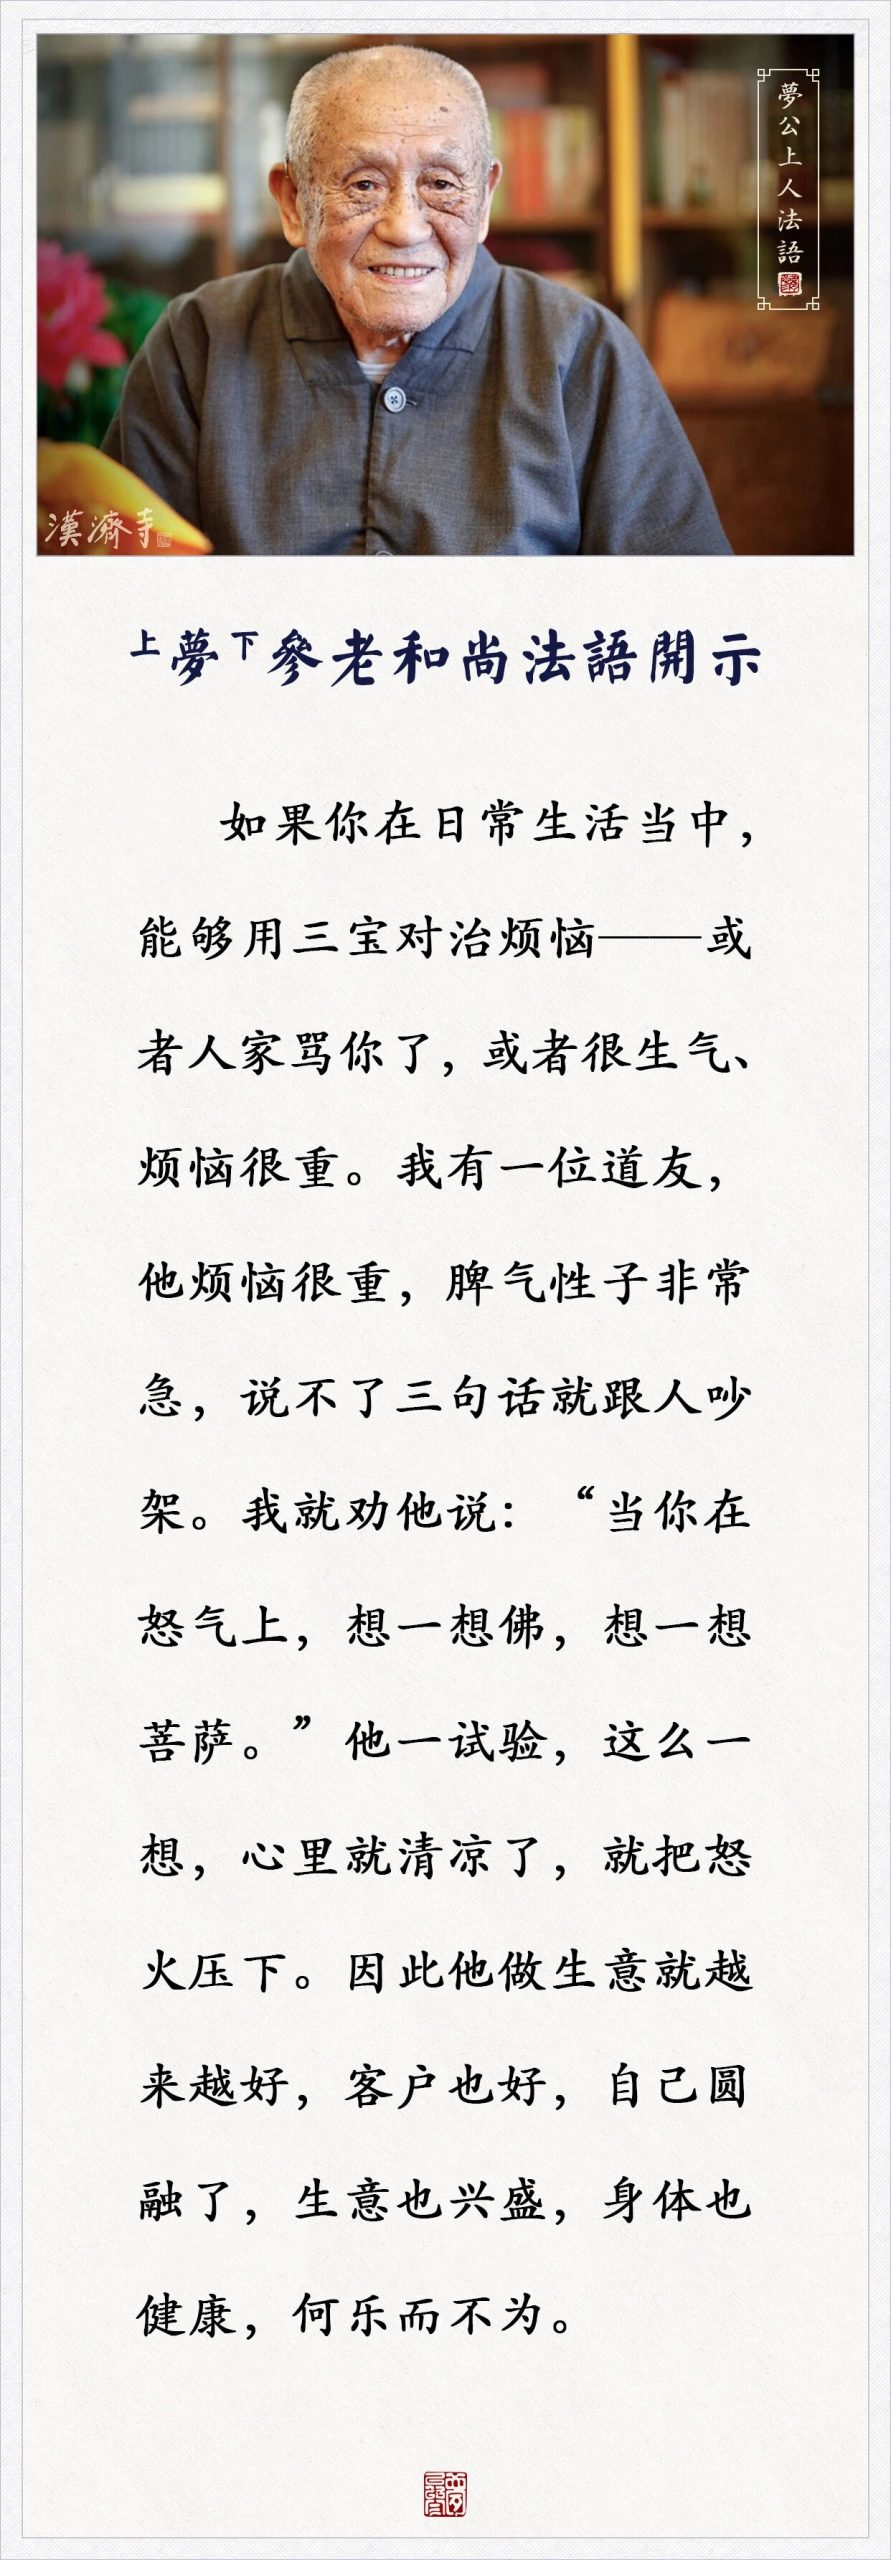 夢公上人法語
漢濟寺
上夢下參老和尚法語開示
如果你在日常生活当中，
能够用三宝对治烦恼——或
者人家骂你了，或者很生气、
烦恼很重。我有一位道友，
他烦恼很重，脾气性子非常
急，说不了三句话就跟人吵
架。我就劝他说：“当你在
怒气上，想一想佛，想一想
菩萨。”他一试验，这么一
想，心里就清凉了，就把怒
火压下。因此他做生意就越
来越好，客户也好，自己圆
融了，生意也兴盛，身体也
健康，何乐而不为。